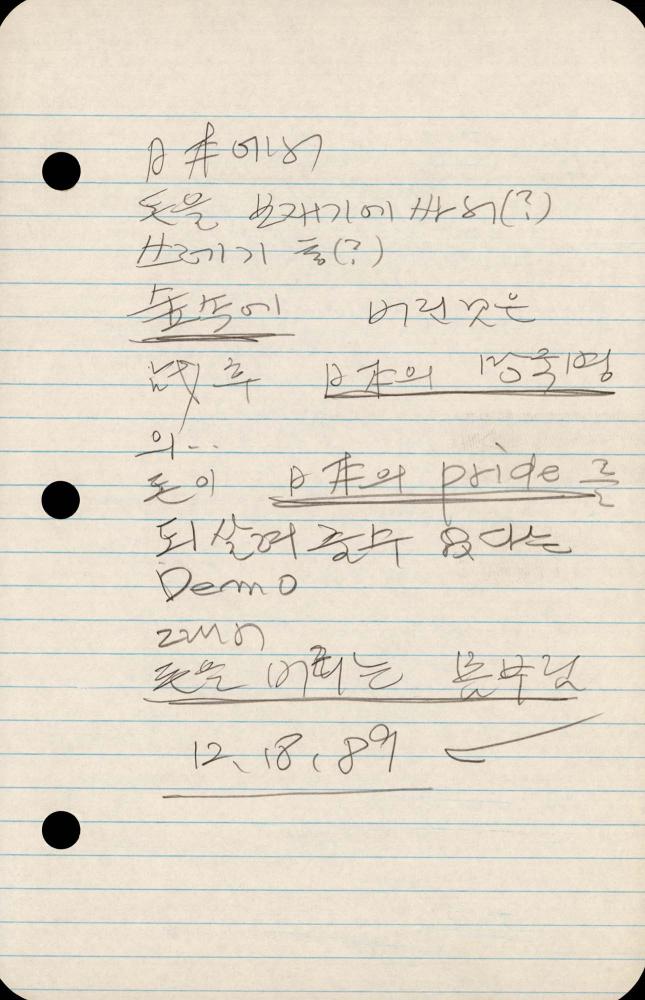 日本에서
돈을 보재기에 싸서(?)
쓰레기 통(?)
통속에 버린 것은
戦후 日本의
의..
돈이 日本의 pride를
되살려 줄수 없다는
Demo
그래서
돈을 버리는 몸부림
12.18.89